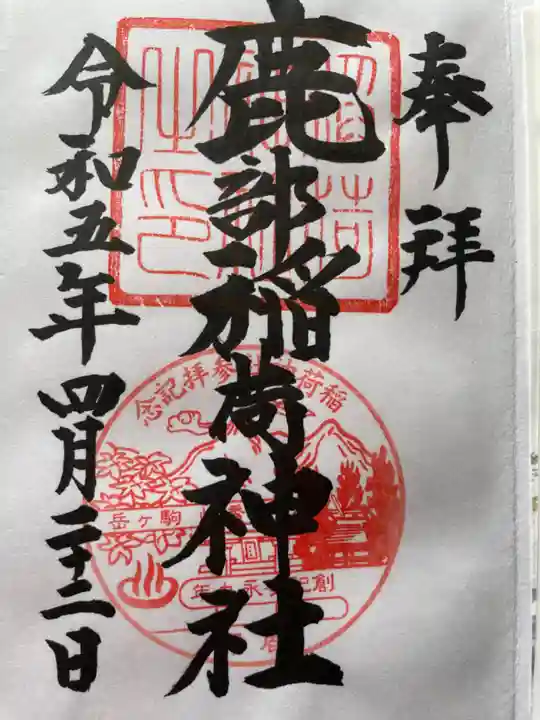 奉拝
鹿部稲荷神社
令和五年四月二十二日
稲荷神社参拝記念
駒ヶ岳